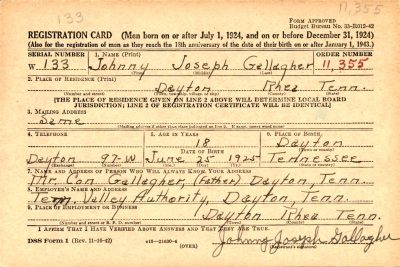 133
11,355
FORM APPROVED
Budget Bureau No. 33-R012-42
REGISTRATION CARD (Men born on or after July 1, 1924, and on or before December 31, 1924)
(Also for the registration of men as they reach the 18th anniversary of the date of their birth on or after January 1, 1943.)
SERIAL NUMBER 1. NAME (Print) ORDER NUMBER
W 133 Johnny Joseph Gallagher 11,355
(First) (Middle) (Last)
2. PLACE OF RESIDENCE (Print)
Dayton Rhea Tenn.
(Number and street) (Town, township, village, or city) (County) (State)
[THE PLACE OF RESIDENCE GIVEN ON LINE 2 ABOVE WILL DETERMINE LOCAL BOARD
JURISDICTION; LINE 2 OF REGISTRATION CERTIFICATE WILL BE IDENTICAL]
3. MAILING ADDRESS
Same
[Mailing address if other than place indicated on line 2. If same, insert word same]
4. TELEPHONE 5. AGE IN YEARS 6. PLACE OF BIRTH
18 Dayton
DATE OF BIRTH (Town or county)
Dayton 97-W June 25 1925 Tennessee
(Exchange) (Number) (Mo.) (Day) (Yr.) (State or country)
7. NAME AND ADDRESS OF PERSON WHO WILL ALWAYS KNOW YOUR ADDRESS
Mr. Con Gallagher, (Father) Dayton, Tenn.
8. EMPLOYER'S NAME AND ADDRESS
Tenn. Valley Authority, Dayton, Tenn.
9. PLACE OF EMPLOYMENT OR BUSINESS
Dayton Rhea Tenn.
(Number and street or R. F. D. number) (Town) (County) (State)
I AFFIRM THAT I HAVE VERIFIED ABOVE ANSWERS AND THAT THEY ARE TRUE.
DSS Form 1 (Rev. 11-16-42) (OVER) Johnny Joseph Gallagher
(Registrant's signature)